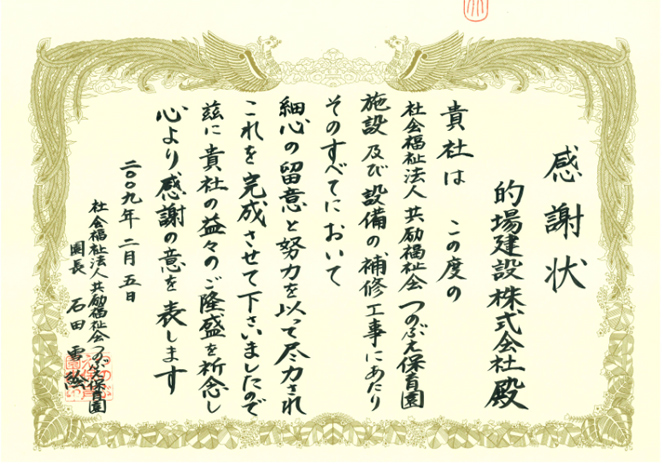 感謝状
的場建設株式会社殿
貴社は この度の
社会福祉法人 共励福祉会 つのぶえ保育園
施設及び設備の補修工事にあたり
そのすべてにおいて
細心の留意と努力を以って尽力され
これを完成させて下さいましたので
茲に貴社の益々のご隆盛を祈念し
心より感謝の意を表します
二〇〇九年二月五日
社会福祉法人共励福祉会つのぶえ保育園
園長 石田